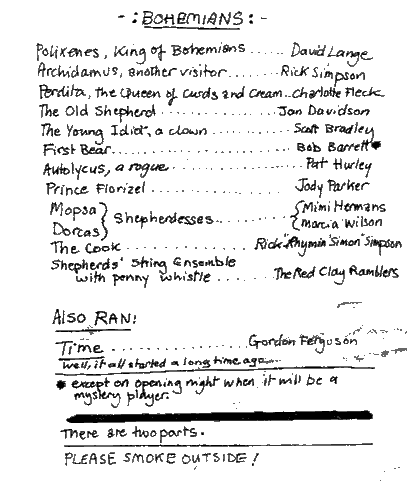 - : BOHEMIANS : -
Polixenes, King of Bohemians ...... David Lange
Archidamus, another visitor ....... Rick Simpson
Perdita, the Queen of Curds and Cream.. Charlotte Fleck
The Old Shepherd ............ Jon Davidson
The Young Idiot, a clown ........ Scott Bradley
First Bear .................. Bob Barrett*
Autolycus, a rogue ............ Pat Hurley
Prince Florizel ............. Jody Parker
Mopsa } Shepherdesses ......... { Mimi Hermans
Dorcas } { Marcia Wilson
The Cook ............... Rick "Rhymin' Simon" Simpson
Shepherds' String Ensemble
with penny whistle ...... The Red Clay Ramblers
ALSO RAN!
Time .................. Gordon Ferguson
Well, it all started a long time ago...
* except on opening night when it will be a
mystery player.
There are two parts.
PLEASE SMOKE OUTSIDE!